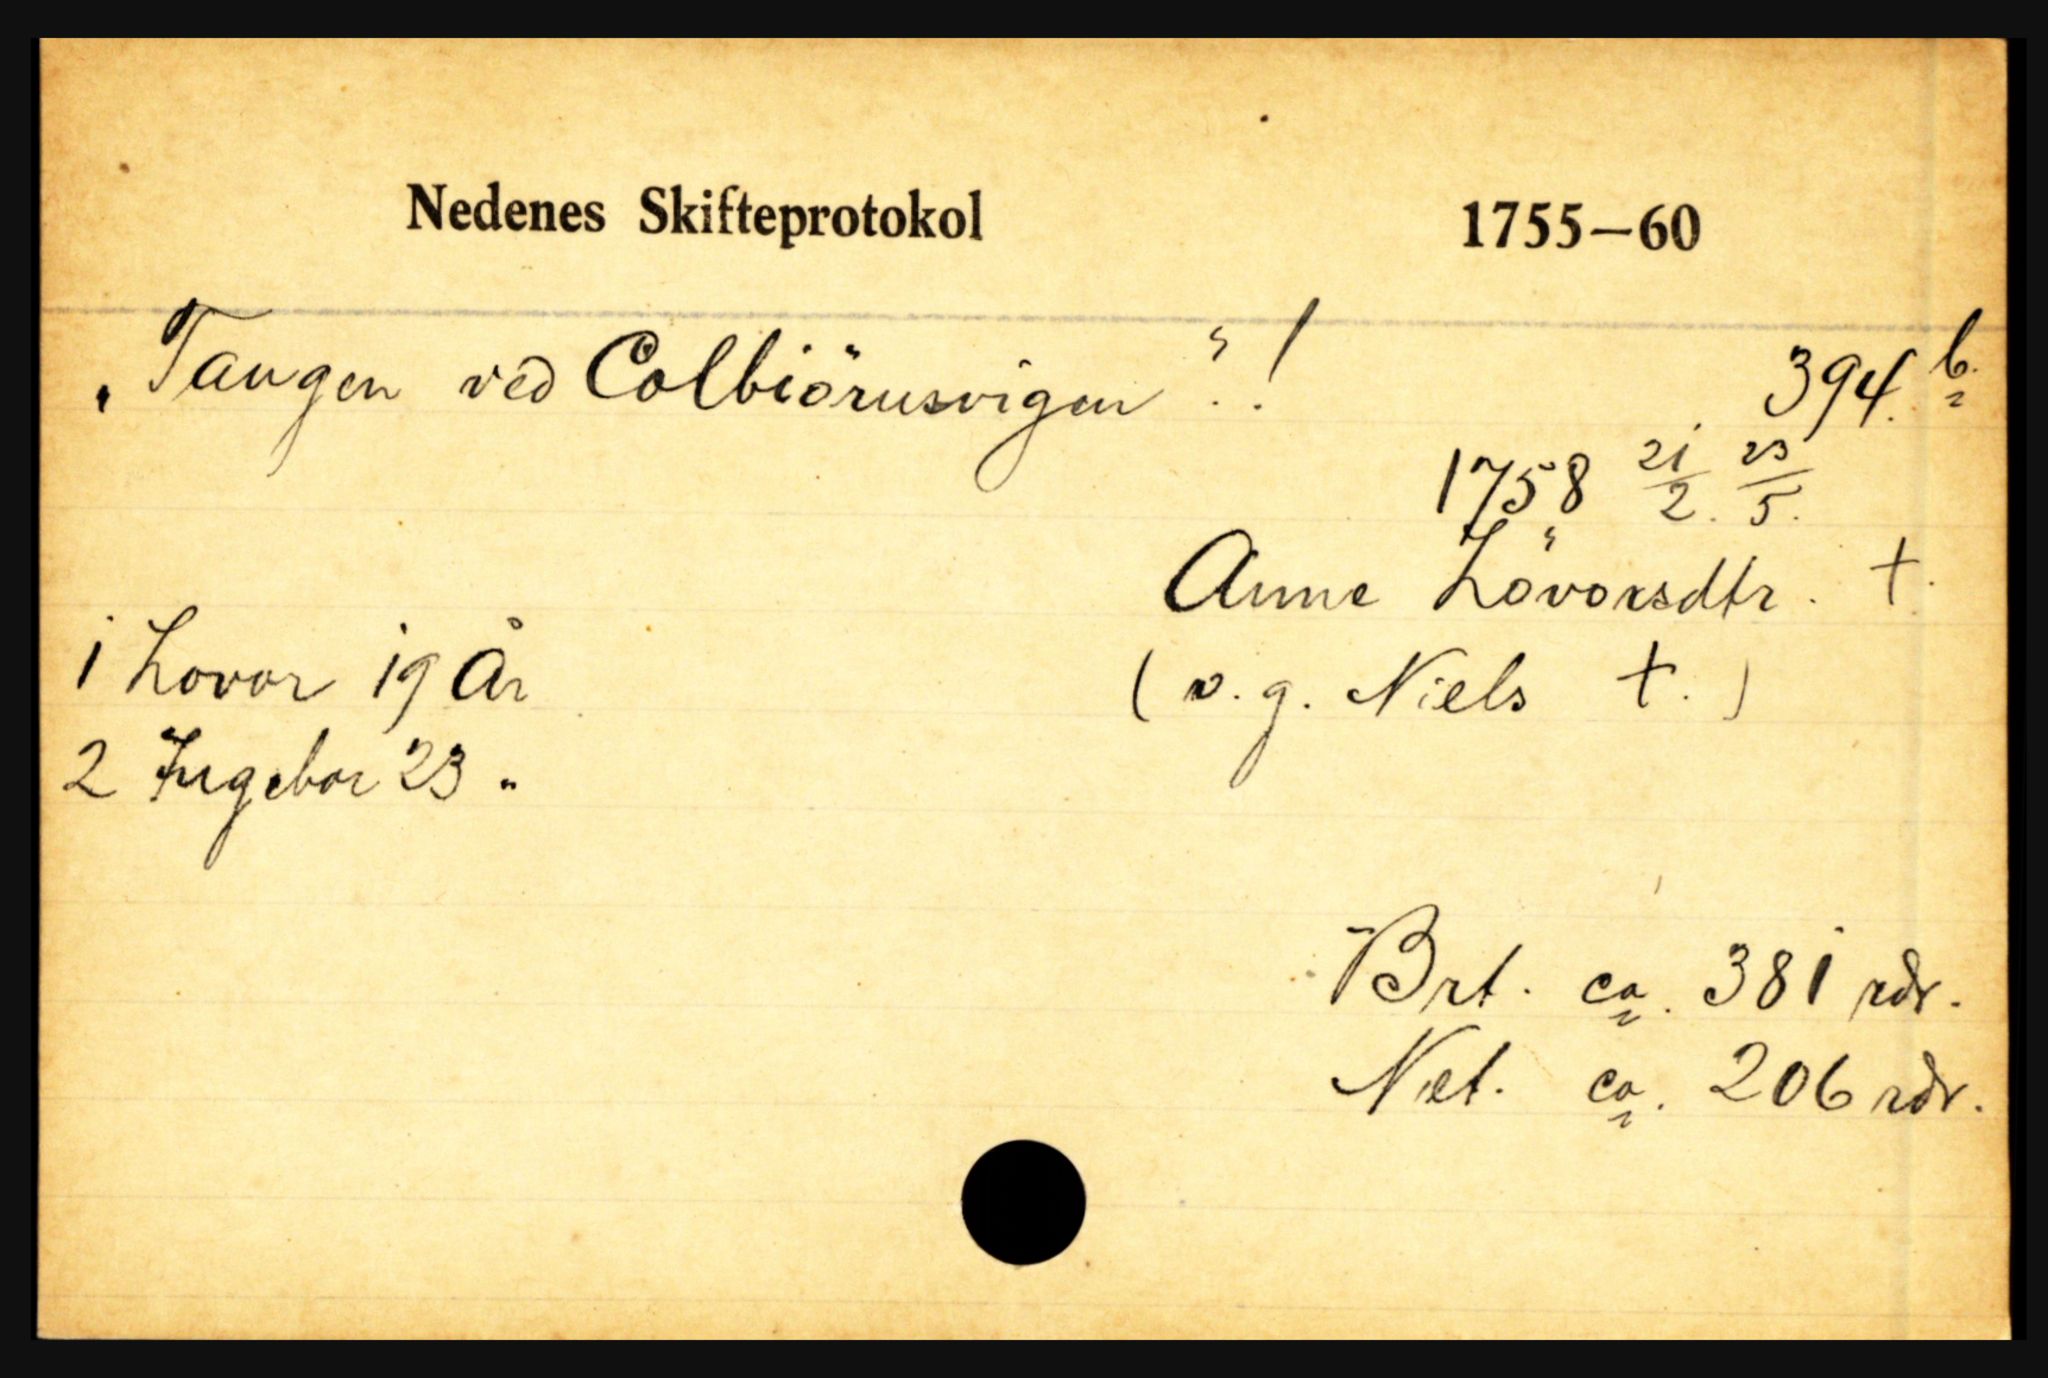 Nedenes Skifteprotokol 1755—60
„Tangen ved Colbiörnsvigen"! 394.b.
1758 21/2. 23/5.
Anne Lövorsdtr. †.
1 Lovor 19 År (v. g. Niels †.)
2 Ingebor 23 "
Brt. ca. 381 rdr.
Net. ca. 206 rdr.